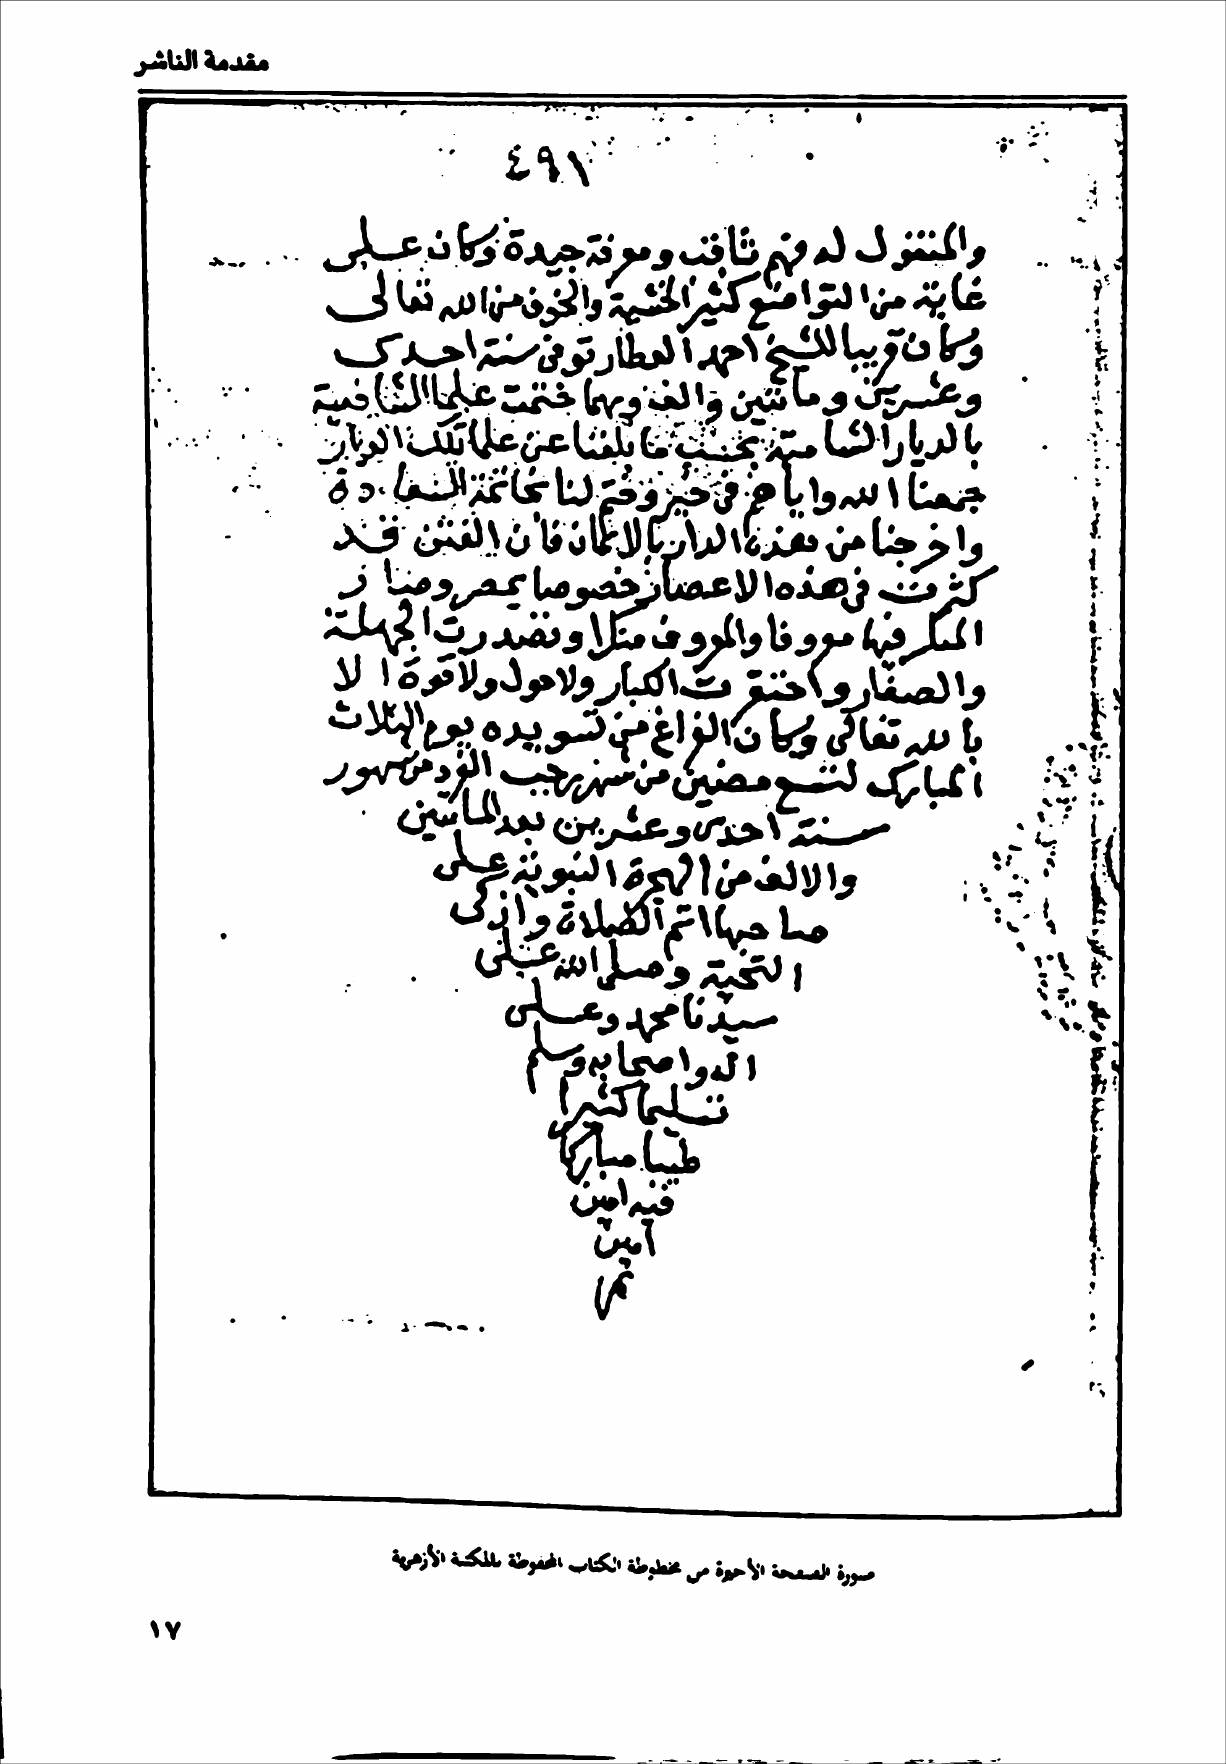 مقدمة الناشر
٤٩١
والمنقول له فهم ثاقب ومعرفة جيدة وكان على
غاية من التواضع كثير الخشية والخوف من الله تعالى
وكان قريبا للشيخ احمد العطار توفى سنة احدى
وعشرين ومائتين والف وبهما ختمت علما الشافعية
بالديار الشامية بحسب ما بلغنا عن علما تلك الديار
جمعنا الله واياهم فى خير وختم لنا بخاتمة السعادة
واخرجنا من هذه الدار بالايمان فان الفتن قد
كثرت فى هذه الاعصار خصوصا بمصر وصار
المنكر فيها معروفا والمعروف منكرا وتصدرت الجهلة
والصغار واحتقرت الكبار ولا حول ولا قوة الا
بالله تعالى وكان الفراغ من تسويده يوم الثلاث
المبارك لتسع مضين من شهر رجب الفرد من شهور
سنة احدى وعشرين بعد المائتين
والالف من الهجرة النبوية على
صاحبها اتم الصلاة وازكى
التحية وصلى الله على
سيدنا محمد وعلى
اله واصحابه وسلم
تسليما كثيرا
طيبا مباركا
فيه امين
امين
تم
صورة الصفحة الأخيرة من مخطوطة الكتاب المحفوظة بالمكتبة الأزهرية
١٧